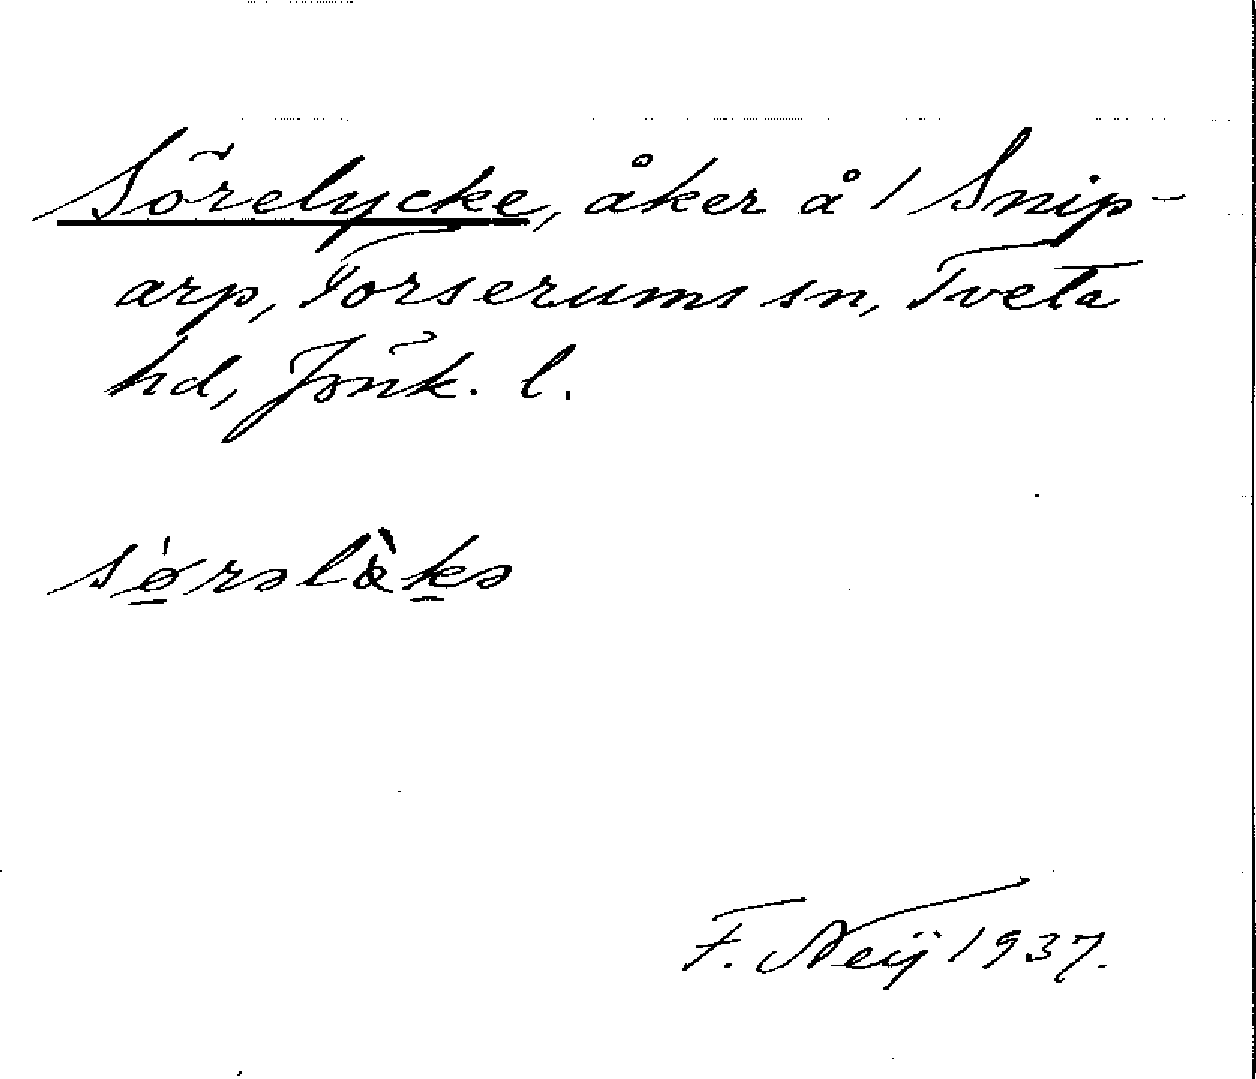 Sörelycke, åker å 1 Snip-
arp, Forserums sn, Tveta
hd, Jönk. l.
F. Neij 1937.